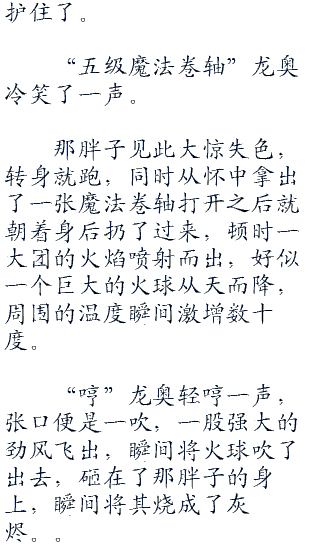 护住了。
“五级魔法卷轴”龙奥
冷笑了一声。
那胖子见此大惊失色，
转身就跑，同时从怀中拿出
了一张魔法卷轴打开之后就
朝着身后扔了过来，顿时一
大团的火焰喷射而出，好似
一个巨大的火球从天而降，
周围的温度瞬间激增数十
度。
“哼”龙奥轻哼一声，
张口便是一吹，一股强大的
劲风飞出，瞬间将火球吹了
出去，砸在了那胖子的身
上，瞬间将其烧成了灰
烬。。